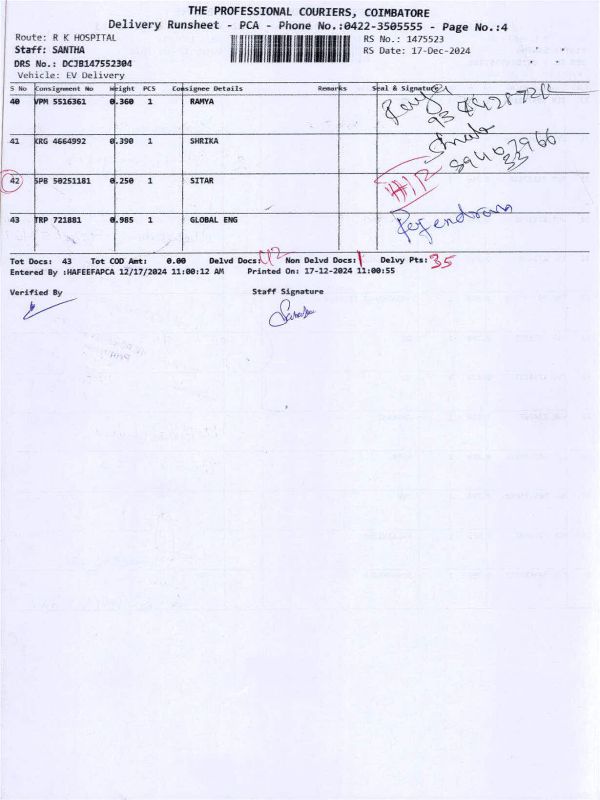 THE PROFESSIONAL COURIERS, COIMBATORE
Delivery Runsheet - PCA - Phone No.:0422-3505555 - Page No.:4
Route: R K HOSPITAL
Staff: SANTHA
DRS No.: DCJB147552304
Vehicle: EV Delivery
RS No.: 1475523
RS Date: 17-Dec-2024
S No Consignment No Weight PCS Consignee Details Remarks Seal & Signature
40 VPM 5516361 0.360 1 RAMYA
41 KRG 4664992 0.390 1 SHRIKA
42 SPB 50251181 0.250 1 SITAR
43 TRP 721881 0.985 1 GLOBAL ENG Rajendran
Tot Docs: 43 Tot COD Amt: 0.00 Delvd Docs: 42 Non Delvd Docs: 1 Delvy Pts: 35
Entered By :HAFEEFAPCA 12/17/2024 11:00:12 AM Printed On: 17-12-2024 11:00:55
Verified By Staff Signature